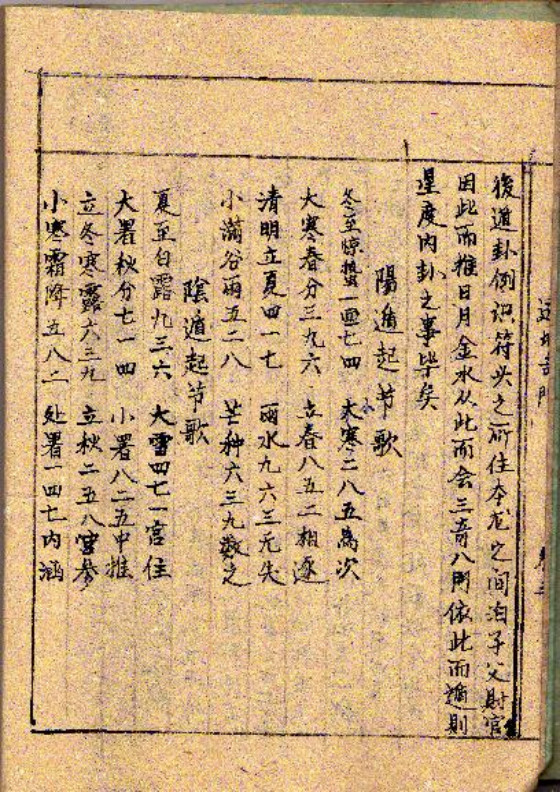 後遁卦例识符头之所住本尨之间泊子父财官
因此而推日月金水从此而会三奇八門依此而遁则
星度内卦之事毕矣
陽遁起节歌
冬至惊蟄一七四　大寒二八五為次
小
大寒春分三九六　立春八五二相逐
清明立夏四一七　雨水九六三元失
小滿谷雨五二八　芒种六三九数之
陰遁起节歌
夏至白露九三六　大雪四七一宫住
大署秋分七一四　小署八二五中推
立冬寒露六三九　立秋二五八宫参
小寒霜降五八二　处署一四七内涵